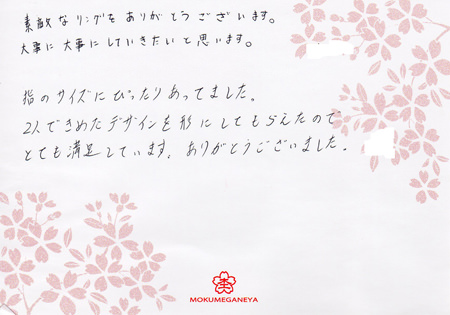 素敵なリングをありがとうございます。
大事に大事にしていきたいと思います。
指のサイズにぴったりあってました。
2人できめたデザインを形にしてもらえたので
とても満足しています。ありがとうございました。
杢
MOKUMEGANEYA